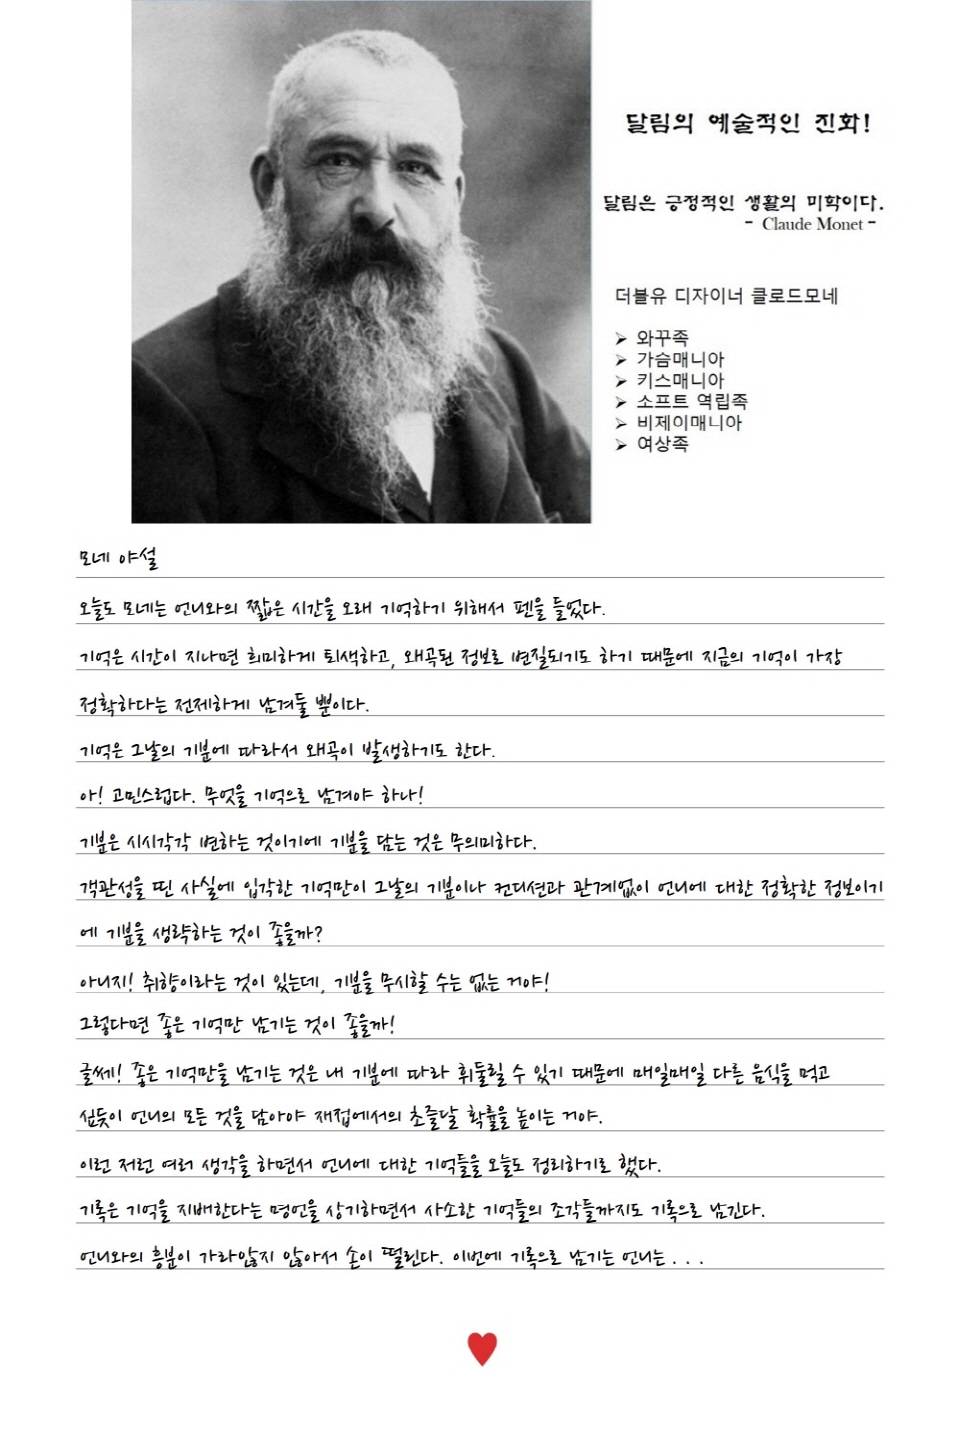 달림의 예술적인 진화!
달림은 긍정적인 생활의 미학이다.
- Claude Monet -
더블유 디자이너 클로드모네
➢ 와꾸족
➢ 가슴매니아
➢ 키스매니아
➢ 소프트 역립족
➢ 비제이매니아
➢ 여상족
모네 야설
오늘도 모네는 언니와의 짧은 시간을 오래 기억하기 위해서 펜을 들었다.
기억은 시간이 지나면 희미하게 퇴색하고, 왜곡된 정보로 변질되기도 하기 때문에 지금의 기억이 가장
정확하다는 전제하게 남겨둘 뿐이다.
기억은 그날의 기분에 따라서 왜곡이 발생하기도 한다.
아! 고민스럽다. 무엇을 기억으로 남겨야 하나!
기분은 시시각각 변하는 것이기에 기분을 담는 것은 무의미하다.
객관성을 띤 사실에 입각한 기억만이 그날의 기분이나 컨디션과 관계없이 언니에 대한 정확한 정보이기
에 기분을 생략하는 것이 좋을까?
아니지! 취향이라는 것이 있는데, 기분을 무시할 수는 없는 거야!
그렇다면 좋은 기억만 남기는 것이 좋을까!
글쎄! 좋은 기억만을 남기는 것은 내 기분에 따라 휘둘릴 수 있기 때문에 매일매일 다른 음식을 먹고
싶듯이 언니의 모든 것을 담아야 재접에서의 초즐달 확률을 높이는 거야.
이런 저런 여러 생각을 하면서 언니에 대한 기억들을 오늘도 정리하기로 했다.
기록은 기억을 지배한다는 명언을 상기하면서 사소한 기억들의 조각들까지도 기록으로 남긴다.
언니와의 흥분이 가라앉지 않아서 손이 떨린다. 이번에 기록으로 남기는 언니는 . . .